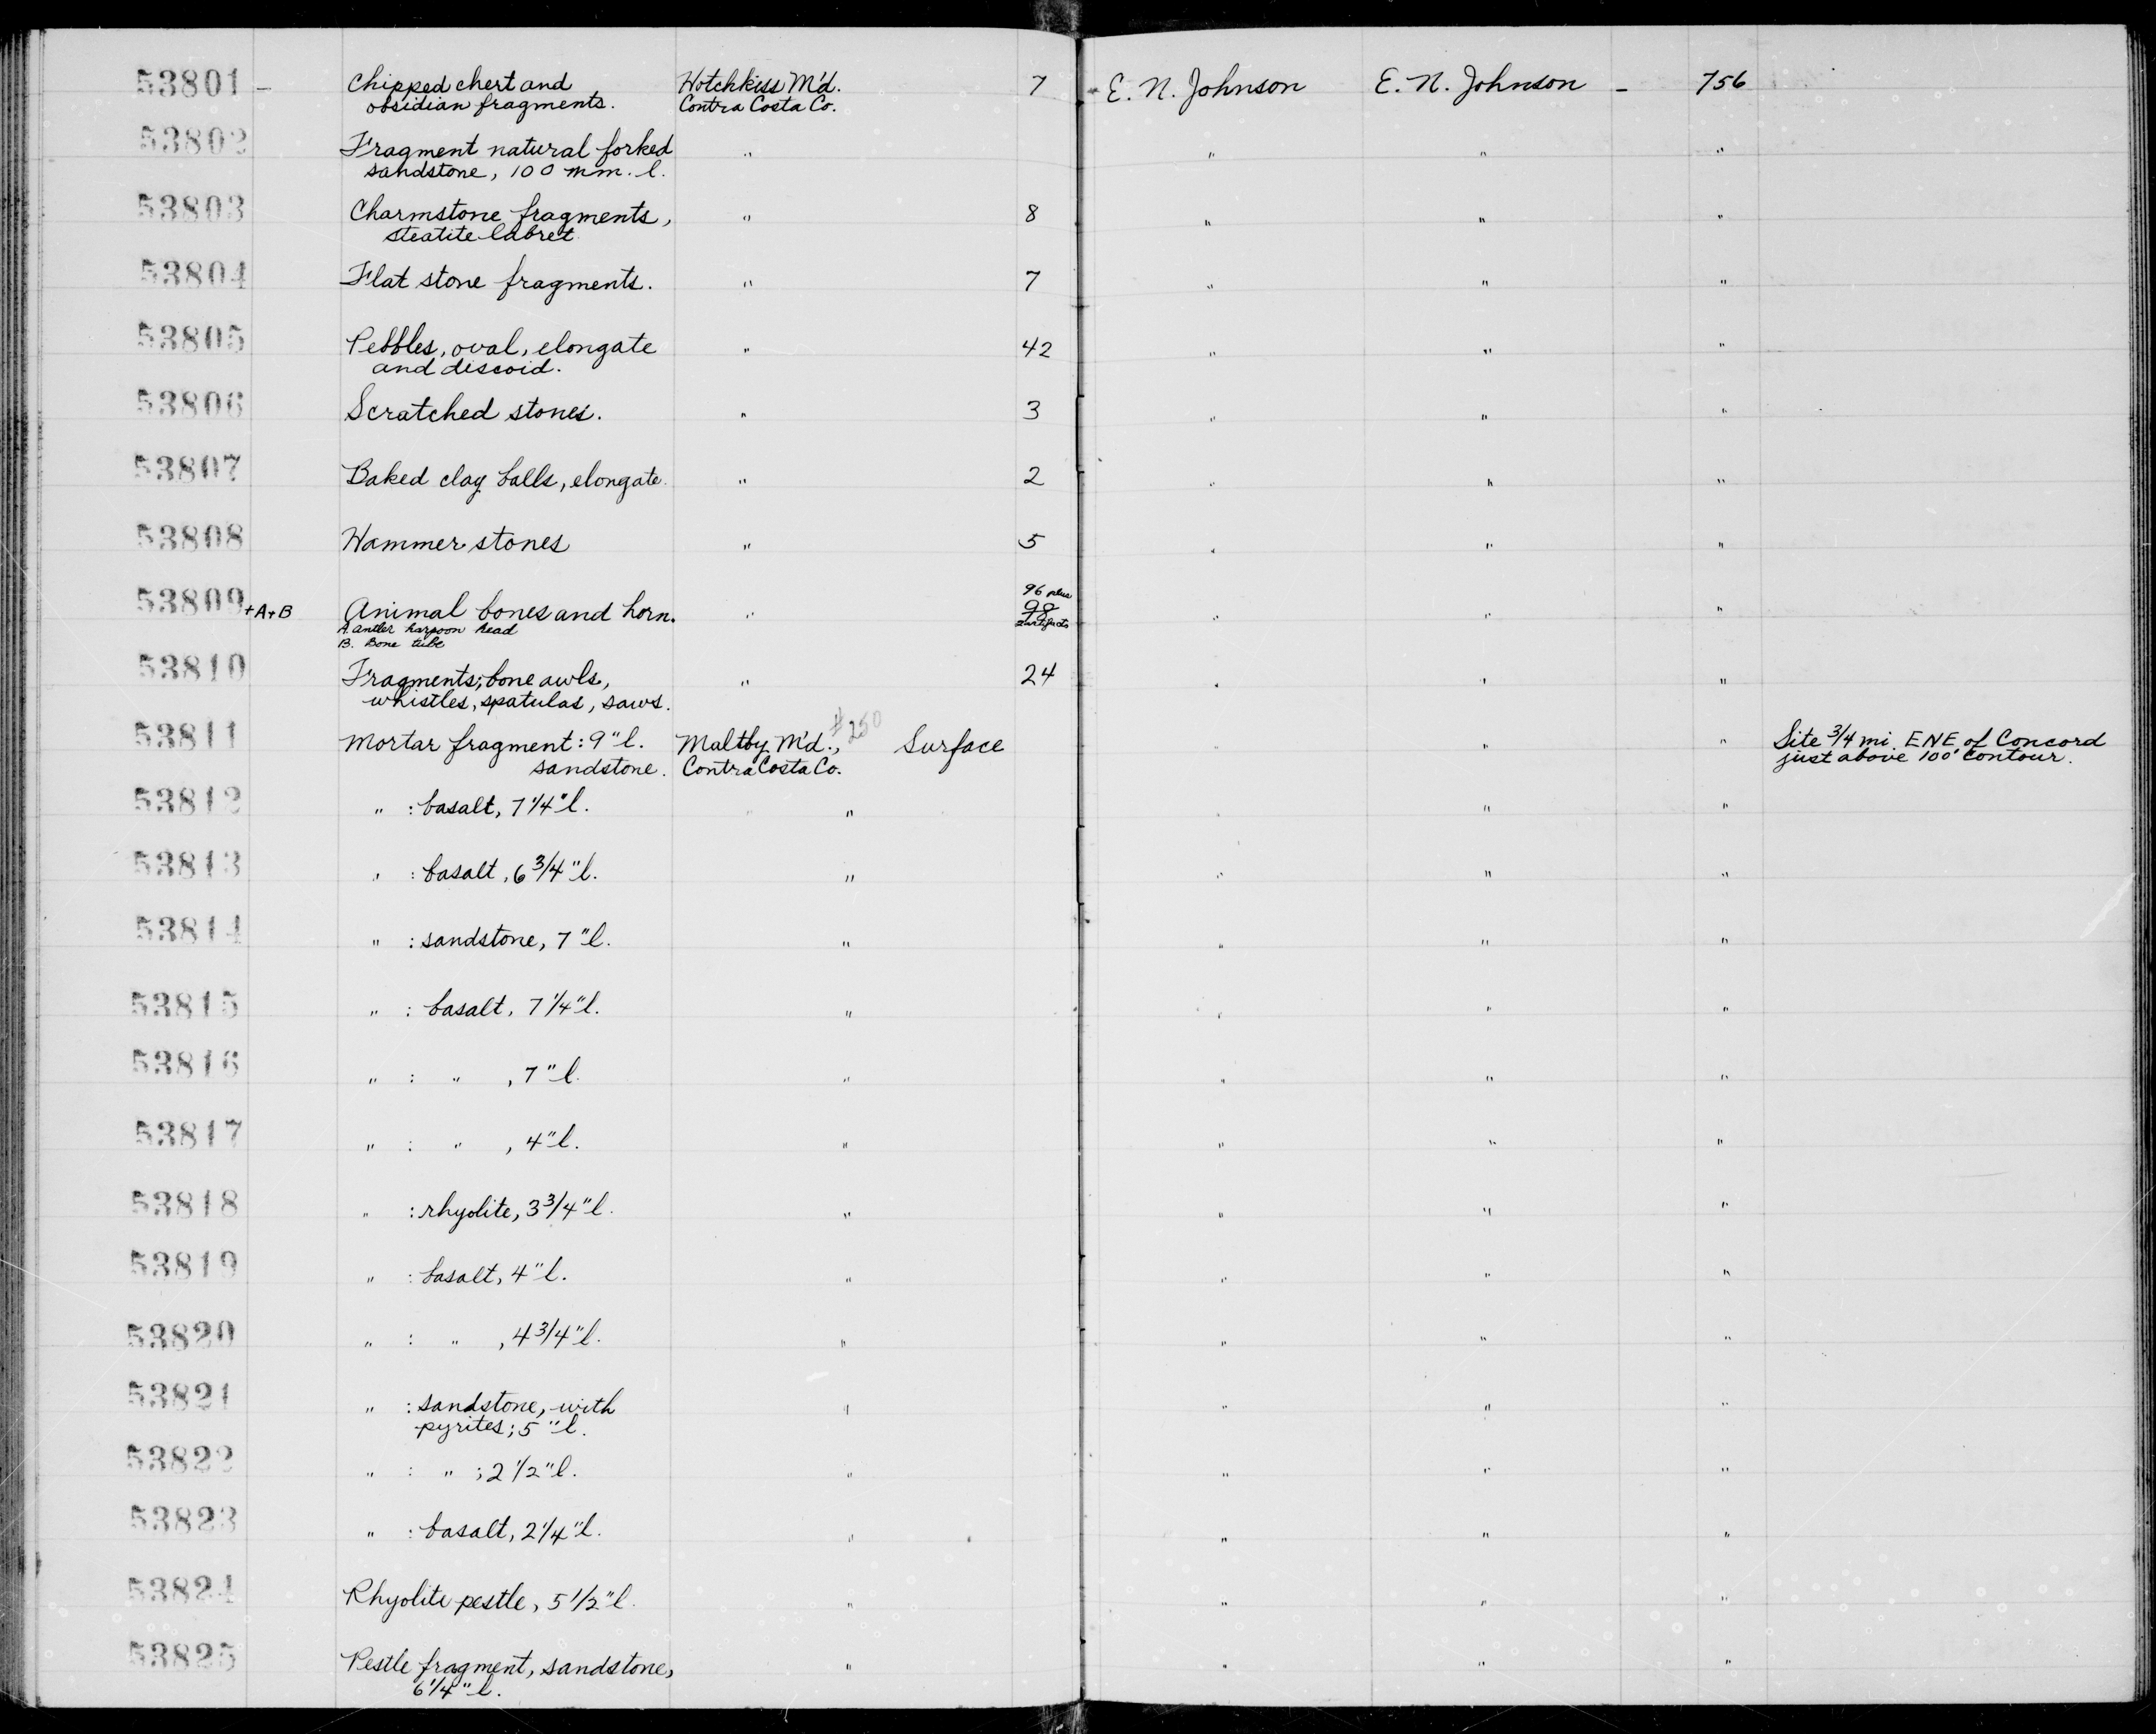 53801 – Chipped chert and Hotchkiss M'd. 7 E. N. Johnson E. N. Johnson – 756
obsidian fragments. Contra Costa Co.
53802 Fragment natural forked " " " "
sandstone, 100 mm. l.
53803 Charmstone fragments, " 8 " " "
steatite labret
53804 Flat stone fragments. " 7 " " "
53805 Pebbles, oval, elongate " 42 " " "
and discoid.
53806 Scratched stones. " 3 " " "
53807 Baked clay balls, elongate. " 2 " " "
53808 Hammer stones " 5 " " "
96 plus
53809 +A+B Animal bones and horn. " 98 " " "
A. antler harpoon head 2 artifacts
B. Bone tube
53810 Fragments; bone awls, " 24 " " "
whistles, spatulas, saws.
53811 Mortar fragment: 9" l. Maltby M'd., #250 Surface " " " Site 3/4 mi ENE of Concord
sandstone. Contra Costa Co. just above 100' contour.
53812 " : basalt, 7 1/4" l. " " " " "
53813 " : basalt, 6 3/4" l. " " " "
53814 " : sandstone, 7" l. " " " "
53815 " : basalt, 7 1/4" l. " " " "
53816 " : " , 7" l. " " " "
53817 " : " , 4" l. " " " "
53818 " : rhyolite, 3 3/4" l. " " " "
53819 " : basalt, 4" l. " " " "
53820 " : " , 4 3/4" l. " " " "
53821 " : sandstone, with " " " "
pyrites; 5" l.
53822 " : " ; 2 1/2" l. " " " "
53823 " : basalt, 2 1/4" l. " " " "
53824 Rhyolite pestle, 5 1/2" l. " " " "
53825 Pestle fragment, sandstone, " " " "
6 1/4" l.